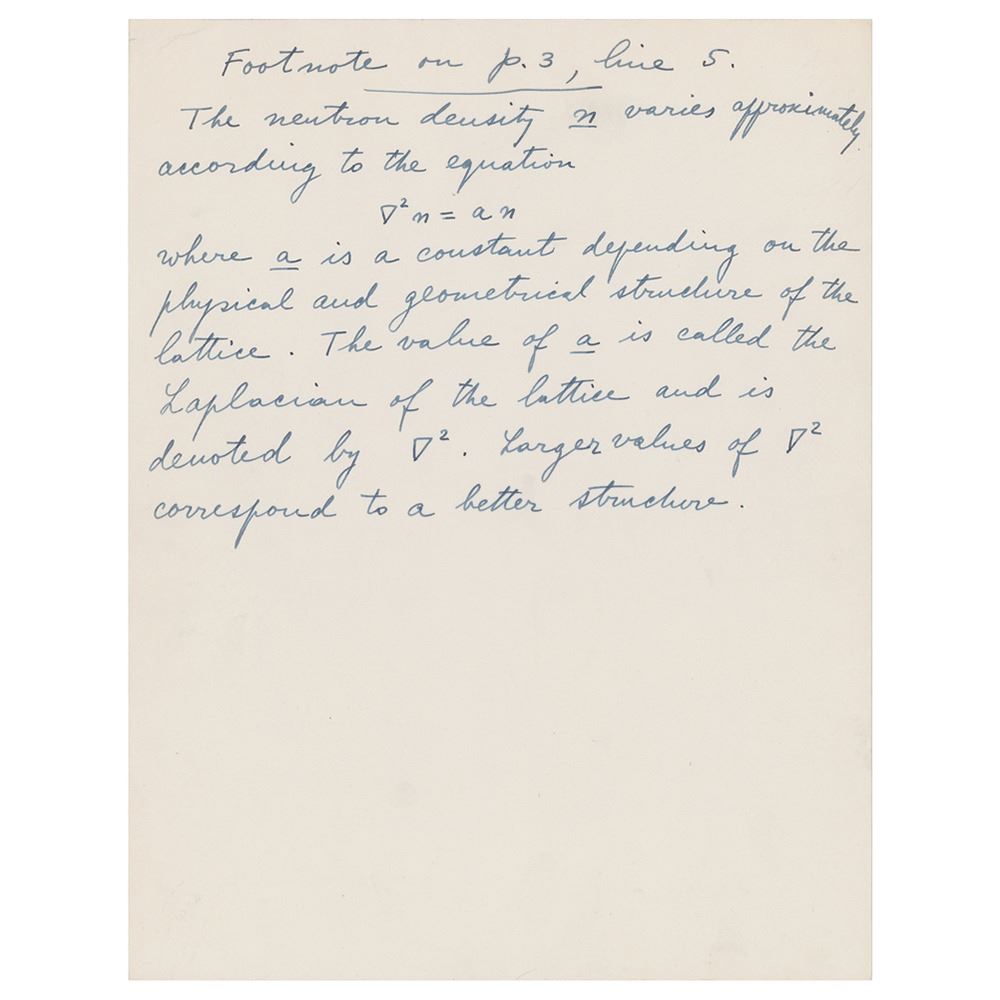 Footnote on p. 3, line 5.
The neutron density n varies approximately
according to the equation
∇²n = a n
where a is a constant depending on the
physical and geometrical structure of the
lattice. The value of a is called the
Laplacian of the lattice and is
denoted by ∇². Larger values of ∇²
correspond to a better structure.